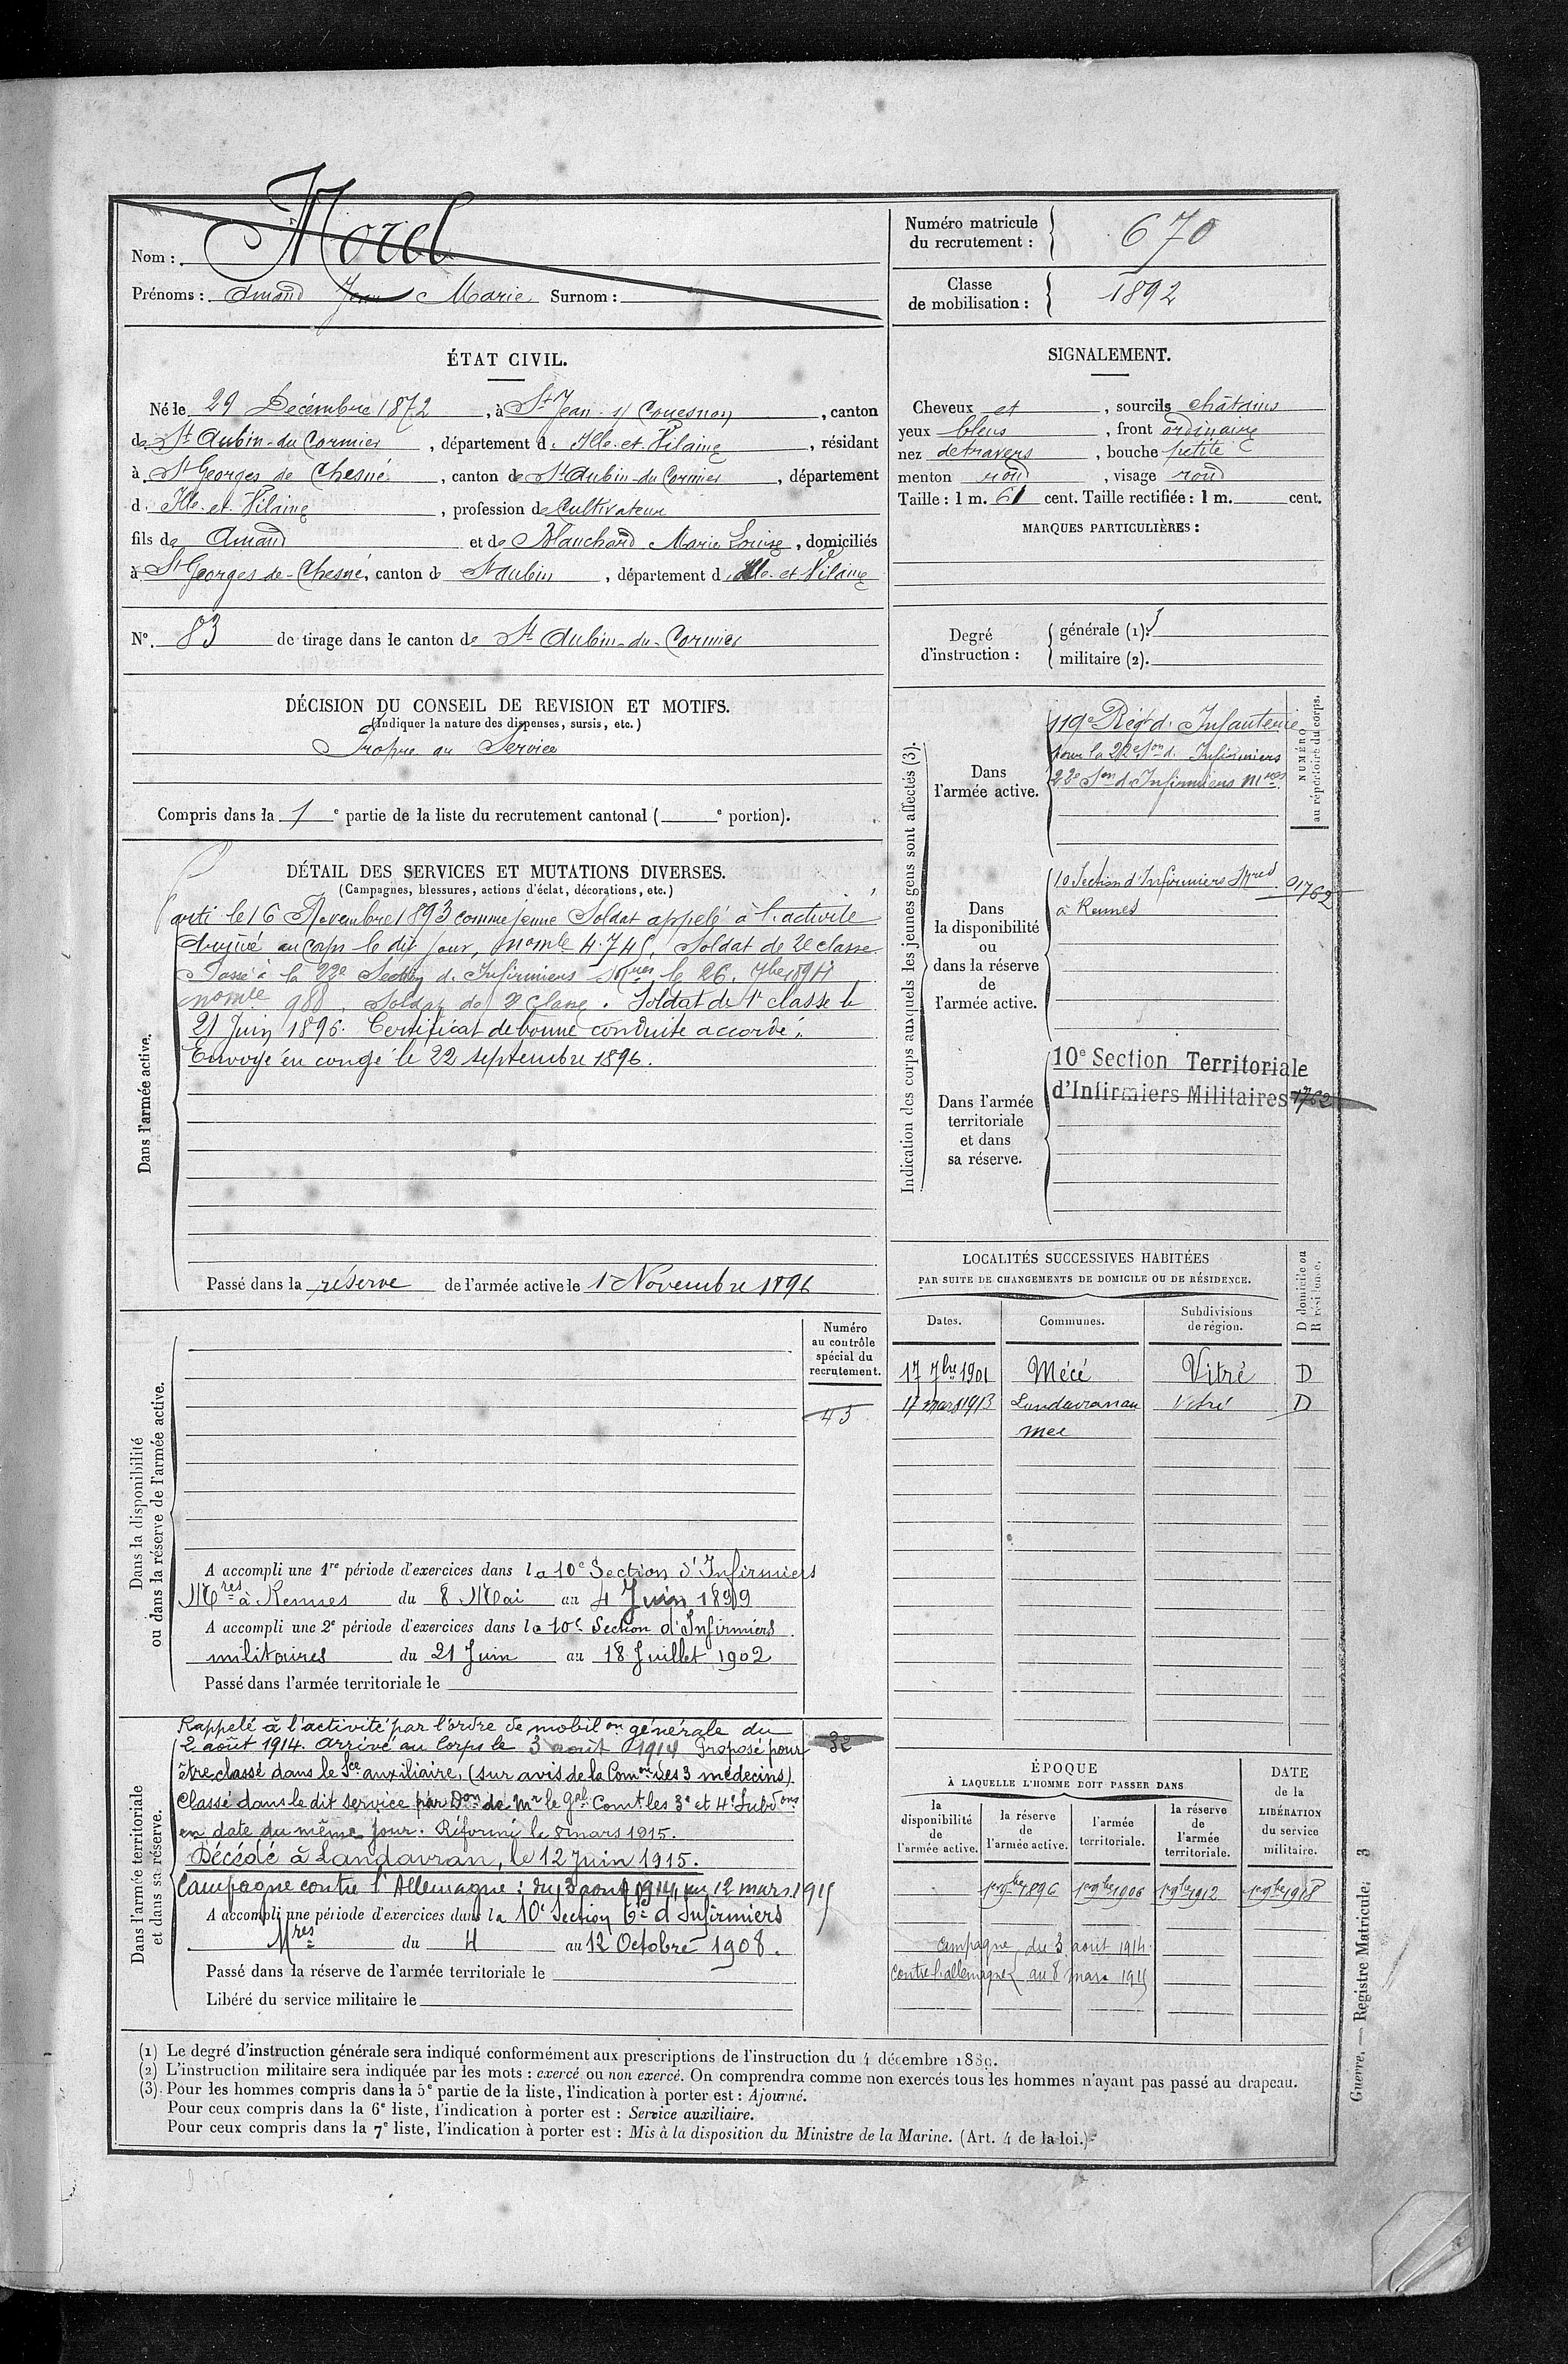 Nom : Morel
Prénoms : Amand Jean Marie Surnom :
Numéro matricule du recrutement : 670
Classe de mobilisation : 1892
ÉTAT CIVIL.
Né le 29 Décembre 1872, à St Jean s/ Couesnon, canton
de St Aubin-du-Cormier, département d. Ille-et-Vilaine, résidant
à St Georges de Chesné, canton de St Aubin-du-Cormier, département
d. Ille-et-Vilaine, profession de Cultivateur
fils de Amand et de Blanchard Marie Louise, domiciliés
à St Georges-de-Chesné, canton de St aubin, département d Ille-et-Vilaine
N° 83 de tirage dans le canton de St Aubin-du-Cormier
SIGNALEMENT.
Cheveux et, sourcils châtains
yeux bleus, front ordinaire
nez detravers, bouche petite
menton rond, visage rond
Taille : 1 m. 61 cent. Taille rectifiée : 1 m. cent.
MARQUES PARTICULIÈRES :
Degré d'instruction :
générale (1): 3
militaire (2).
DÉCISION DU CONSEIL DE REVISION ET MOTIFS.
(Indiquer la nature des dispenses, sursis, etc.)
Propre au Service
Compris dans la 1e partie de la liste du recrutement cantonal ( e portion).
DÉTAIL DES SERVICES ET MUTATIONS DIVERSES.
(Campagnes, blessures, actions d'éclat, décorations, etc.)
Dans l'armée active.
Parti le 16 Novembre 1893 comme jeune Soldat appelé à l'activité
Arrivé au corps le dit jour, nomle 4.745, Soldat de 2e classe
Passé à la 22e Section d. Infirmiers Mres le 26. 7bre 1894
nomle 988. Soldat de 2e Classe. Soldat de 1e classe le
21 Juin 1896. Certificat de bonne conduite accordé.
Envoyé en congé le 22 septembre 1896.
Passé dans la réserve de l'armée active le 1er Novembre 1896
Indication des corps auxquels les jeunes gens sont affectés (3).
NUMÉRO au répertoire du corps.
Dans l'armée active.
119e Régt d. Infanterie
pour la 22e Son d. Infirmiers
22e Son d. Infirmiers Mres
Dans la disponibilité ou dans la réserve de l'armée active.
10 Section d'Infirmiers Mres 01762
à Rennes
Dans l'armée territoriale et dans sa réserve.
10e Section Territoriale
d'Infirmiers Militaires 1762
LOCALITÉS SUCCESSIVES HABITÉES
PAR SUITE DE CHANGEMENTS DE DOMICILE OU DE RÉSIDENCE.
Dates. Communes. Subdivisions de région. D domicile ou R résidence.
17 7bre 1901 Mécé Vitré D
17 mars 1913 Landavran au Vitré D
mee
Dans la disponibilité ou dans la réserve de l'armée active.
Numéro au contrôle spécial du recrutement.
45
A accompli une 1re période d'exercices dans la 10e Section d'Infirmiers
Mres à Rennes du 8 Mai au 4 Juin 1899
A accompli une 2e période d'exercices dans la 10e Section d'Infirmiers
militaires du 21 Juin au 18 Juillet 1902
Passé dans l'armée territoriale le
Dans l'armée territoriale et dans sa réserve.
Rappelé à l'activité par l'ordre de mobilon générale du
2 août 1914. Arrivé au Corps le 3 août 1914 Proposé pour 32
être classé dans le Sce auxiliaire, (sur avis de la Comon des 3 médecins)
Classé dans le dit service par Don de Mr le Gal Comt les 3e et 4e Subdons
en date du même jour. Réformé le 8 mars 1915.
Décédé à Landavran, le 12 Juin 1915.
Campagne contre l'Allemagne : du 3 aout 1914 au 12 mars 1915
A accompli une période d'exercices dans la 10e Section Tle d Infirmiers
Mres du 4 au 12 Octobre 1908.
Passé dans la réserve de l'armée territoriale le
Libéré du service militaire le
ÉPOQUE
À LAQUELLE L'HOMME DOIT PASSER DANS
la disponibilité de l'armée active.
la réserve de l'armée active.
l'armée territoriale.
la réserve de l'armée territoriale.
DATE de la LIBÉRATION du service militaire.
1er 9bre 1896 1er 9bre 1906 1er 9bre 1912 1er 9bre 1918
Campagne du 3 août 1914
contre l'allemagne au 8 mars 1915
(1) Le degré d'instruction générale sera indiqué conformément aux prescriptions de l'instruction du 4 décembre 1889.
(2) L'instruction militaire sera indiquée par les mots : exercé ou non exercé. On comprendra comme non exercés tous les hommes n'ayant pas passé au drapeau.
(3) Pour les hommes compris dans la 5e partie de la liste, l'indication à porter est : Ajourné.
Pour ceux compris dans la 6e liste, l'indication à porter est : Service auxiliaire.
Pour ceux compris dans la 7e liste, l'indication à porter est : Mis à la disposition du Ministre de la Marine. (Art. 4 de la loi.)
Guerre. — Registre Matricule. 3